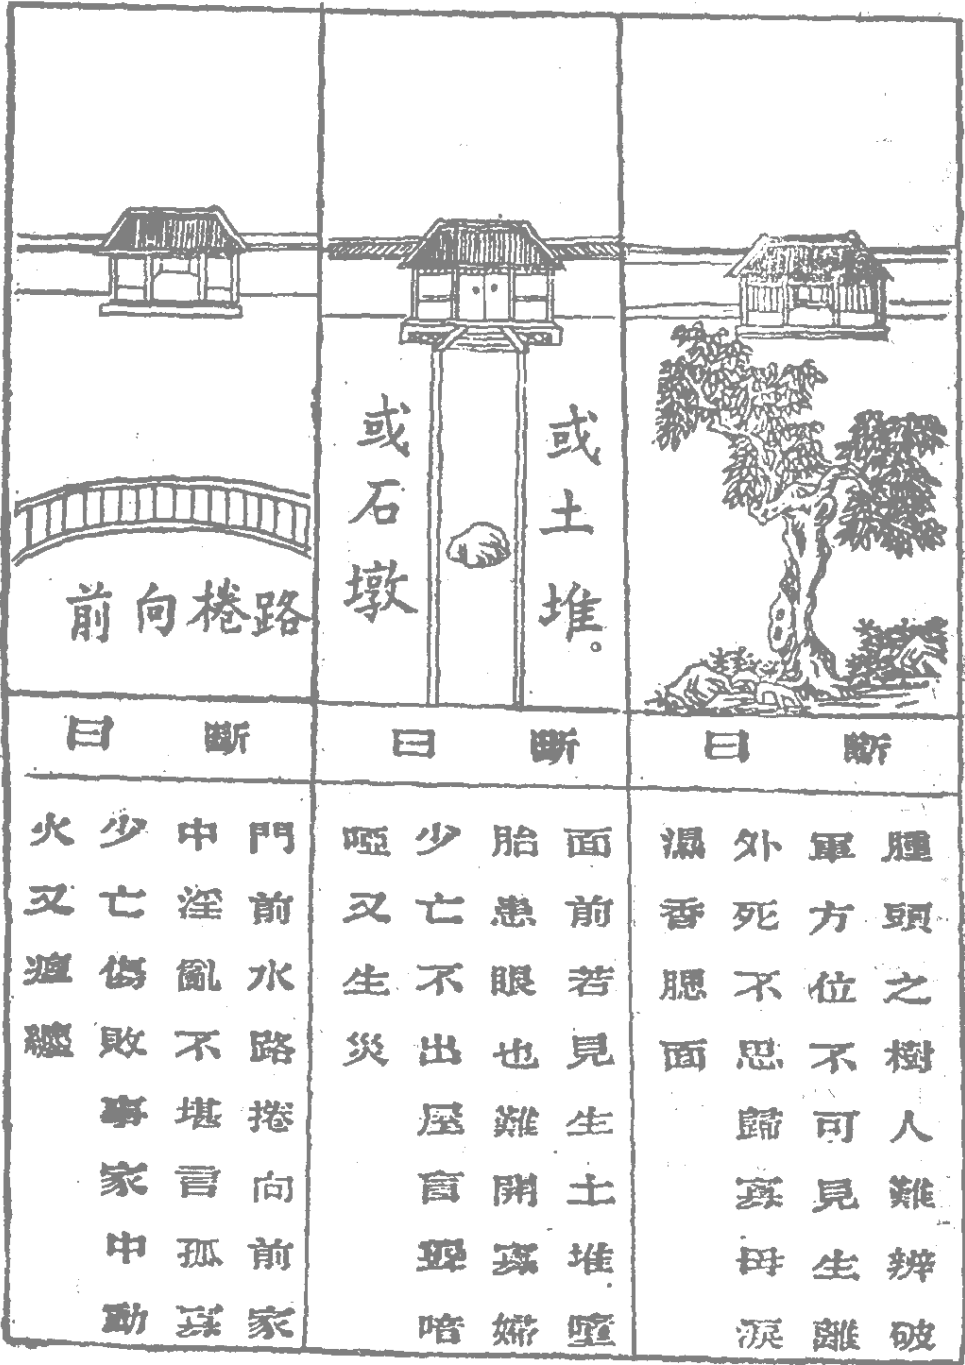 斷曰
腫頭之樹人難辨破
軍方位不可見生離
外死不思歸寡母淚
濕香腮面
或土堆。
或石墩
斷曰
面前若見生土堆墮
胎患眼也難開寡婦
少亡不出屋盲聾喑
啞又生災
路棬向前
斷曰
門前水路捲向前家
中淫亂不堪言孤寡
少亡傷敗事家中動
火又瘟纏